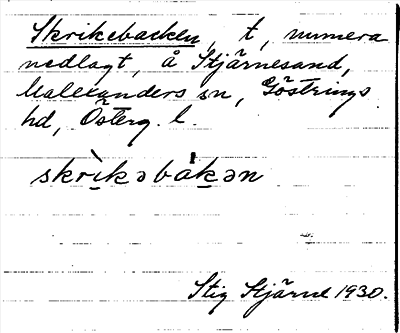 Skrikebacken, t, numera
nedlagt, å Stjärnesand,
Kaleranders sn, Göstrings
hd, Österg. l.
skrìkəbákən
Stig Stjärne 1930.